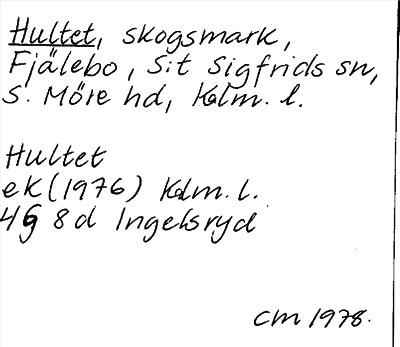 Hultet, skogsmark,
Fjälebo, S:t Sigfrids sn,
S. Möre hd, Kalm. l.
Hultet
ek (1976) Kalm. l.
4G 8d Ingelsryd
CM 1978.